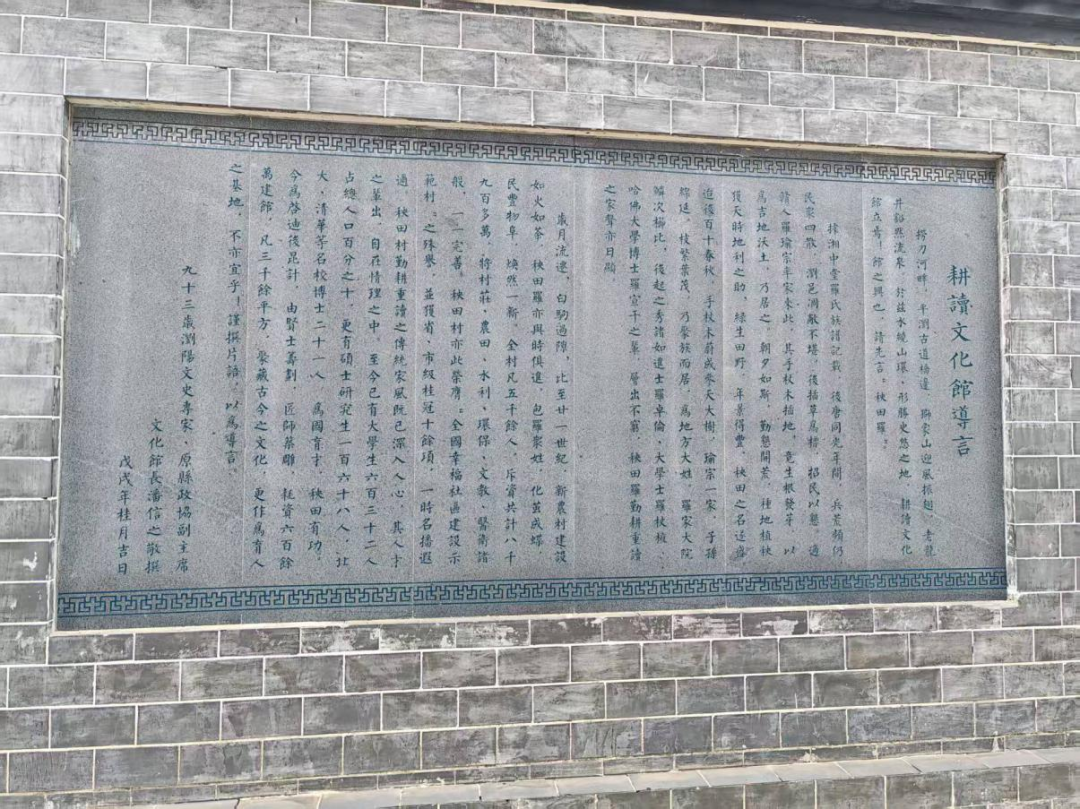 耕讀文化館導言
撈刀河畔，平瀏古道橋邊，獅象山迎風振翅，老龍
井韜興流泉，於茲水繞山環，形勝史悠之地，耕讀文化
館立焉！館之興也，請先言：秧田羅。
據湘中堂羅氏族譜記載，後唐同光年間，兵荒頻仍
民眾四散，瀏邑凋敝不堪，後插草為標，招民以墾，適
贛人羅瑜宗率家來此，其手杖木插地，竟生根發芽，以
為吉地沃土，乃居之，朝夕如斯，勤懇開荒，種地植秧
獲天時地利之助，綠生田野，年景得豐，秧田之名迂
迨緣百十春秋，手杖木蔚成參天大樹，瑜宗一家，子孫
綿延，枝繁葉茂，乃聚族而居，為地方大姓，羅家大院
鱗次櫛比，後起之秀諸如進士羅卓倫、大學士羅枚核、
哈佛大學博士羅富千之輩，層出不窮，秧田羅勤耕重讀
之家聲亦日顯
歲月流逝，白駒過隙，比至廿一世紀，新農村建設
如火如荼，秧田羅亦與時俱進，包羅眾姓，化茧成蝶
民豐物阜，煥然一新，全村凡五千餘人，斥資共計八千
九百多萬，將村莊、農田、水利、環保、文教、醫衛諸
般，一一完善。秧田村亦此榮膺：全國幸福社區建設示
範村：之殊譽，並獲省、市級桂冠十餘項，一時名播遐
邇，秧田村勤耕重讀之傳統家風既已深入人心，其人才
之輩出，自在情理之中，至今已有大學生六百三十二人
占總人口百分之十，更有碩士研究生一百六十八人，北
大、清華等名校博士二十一人，為國育才，秧田有功，
今為啓迪後昆計，由賢士籌劃，匠師藻雕，耗資六百餘
萬建館，凡三千餘平方，聚藏古今之文化，更作為育人
之基地，不亦宜乎！謹撰片語，以為導言。
九十三歲瀏陽文史專家、原縣政協副主席
文化館長潘信之敬撰
戊戌年桂月吉日